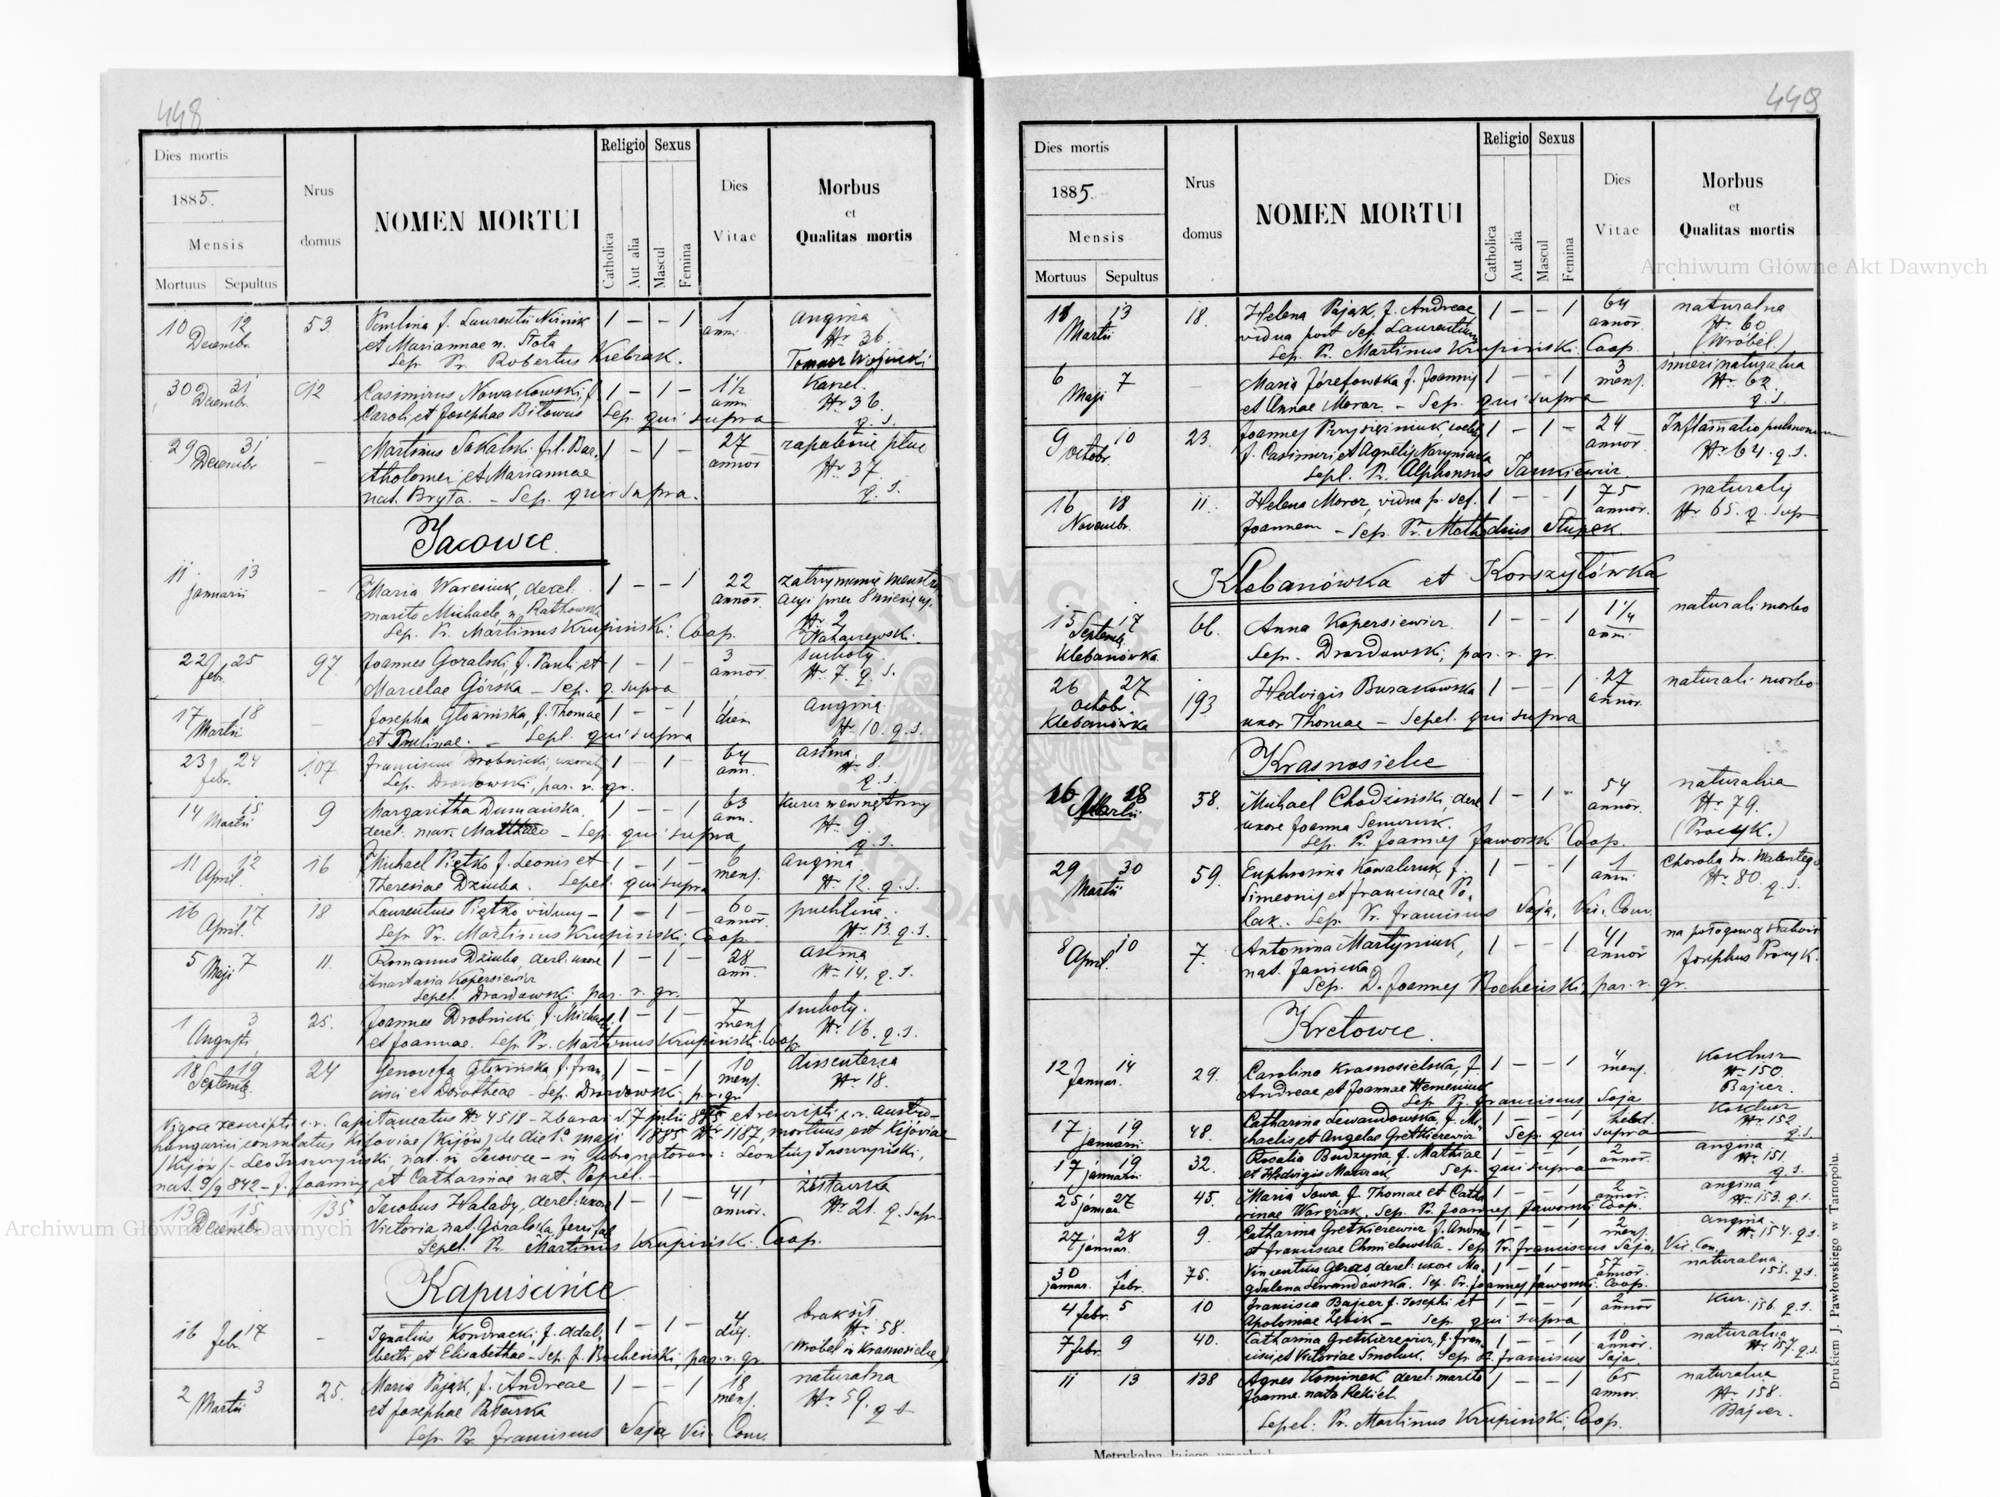 448
Dies mortis
1885.
Mensis
Mortuus Sepultus
Nrus
domus
NOMEN MORTUI
Religio Sexus
Catholica
Aut alia
Mascul
Femina
Dies
Vitae
Morbus
et
Qualitas mortis
10 12 53 Paulina f. Laurentii 1 — — 1 1 angina
Decembr. et Mariannae n. Stota anni Nr 36.
Sep. Pr. Robertus
30 31 92 Casimirus Nowakowski, f. 1 — 1 — 1½
Decembr. Caroli et Josephae Sep. qui supra anni Nr 36. q. s.
29 31 — Martinus Sokalski fil. Bar- 1 — 1 — 27 zapalenie płuc
Decembr tholomei et Mariannae annor Nr 37
nat. Bryła. — Sep. qui supra. q. s.
Jacowce
11 13 — Maria derel. 1 — — 1 22
Januarii marito Michaele n. Ratkowska annor.
Sep. Pr. Martinus Krupiński Coop. Nr. 2
22 25 97. Joannes Goralski, f. Pauli et 1 — 1 — 3 suchoty
febr. Marielae Górska — Sep. q. supra annor. Nr. 7. q. s.
17 18 — Josepha Głowińska, f. Thomae 1 — — 1 angina
Martii et Paulinae. — Sepel. qui supra Nr 10. q. s.
23 24 107 Franciscus Drobnicki, 1 — 1 — 64 astma
febr. Sep. par. r. gr. ann. Nr 8. q. s.
14 15 9 Margaritha Dumańska 1 — — 1 63 wewnętrzny
Martii derel. mar. — Sep. qui supra ann. Nr 9. q. s.
11 12 16 Michael Piętko f. Leonis et 1 — 1 — 6 angina
April. Theresiae Dziuba. Sepel. qui supra mens. Nr. 12. q. s.
16 17 18 Laurentius Piętko viduus — 1 — 1 — 60 puchlina
April. Sep. Pr. Martinus Krupiński, Coop. annor. Nr. 13. q. s.
5 7 11. Romanus Dziuba, derel. uxore 1 — 1 — 28 astma
Maji Anastasia Kopersiewicz ann. Nr. 14. q. s.
Sepel. par. r. gr.
1 3 25. Joannes Drobnicki, f. Michael. 1 — 1 — 7 suchoty.
Augusti et Joannae. Sep. Pr. Martinus Krupiński Coop. mens. Nr. 16. q. s.
18 19 24 Genovefa Głowińska, f. Fran- 1 — — 1 10 dissenteria
Septemb. cisci et Dorotheae — Sep. p. r. gr. mens. Nr 18.
Vigore rescripti c. r. Capitaneatus Nr 4518 — Zbaraż d. 7 julii 885 et rescripti c. r. austro-
hungarici consulatus Kijoviae /Kijów/ de die maji 1885 Nr 1187, mortuus est Kijoviae
/Kijów/ — Leo nat. in Jacowce — in
nat. 9/9 842 — f. Joannis et Catharinae nat.
13 15 135 Jacobus Halady, derel. uxore 41
Decembr. Victoria nat. Goralska annor. Nr 21. q. supr.
Sepel. Pr. Martinus Krupiński Coop.
Kapuścińce
16 17 — Ignatius Kondracki, f. Adal- 1 — 1 — 4 brak sił
febr. berti et Elisabethae — Sep. J. Bocheński, par. r. gr. Nr 58.
(Wróbel z Krasnosielec)
2 3 25. Maria Pająk, f. Andreae 1 — — 1 18 naturalna
Martii et Josephae mens. Nr 59. q. s
Sep. Pr. Franciscus Saja Vic. Conv.
449
Dies mortis
1885.
Mensis
Mortuus Sepultus
Nrus
domus
NOMEN MORTUI
Religio Sexus
Catholica
Aut alia
Mascul
Femina
Dies
Vitae
Morbus
et
Qualitas mortis
13 18. Helena Pająk, f. Andreae 1 — — 1 64 naturalna
Martii vidua post sep. Laurentium annor. Nr. 60
Sep. Pr. Martinus Krupiński Coop. (Wróbel.)
6 7 — Maria Józefowska f. Joannis 1 — — 1 3 naturalna
Maji et Annae Moroz. — Sep. qui supra mens. q. s.
9 10 23. Joannes coelebs 1 — 1 — 24 Inflamatio pulmonum
octobr. f. Casimiri et Agnetis annor Nr 64. q. s.
Sepl. Pr. Alphonsus Jankiewicz
16 18 11. Helena Moroz, vidua p. sep. 1 — — 1 75 naturalis
Novembr. Joannem — Sep. Pr. Methodius Stupek. annor. Nr 65. q. sup
Klebanówka et Korszyłówka
15 17 66. Anna Kopersiewicz 1 — — 1 1¼ naturali morbo
Septemb. Sep. par. r. gr. anni.
Klebanówka
26 27 193 Hedvigis Burakowska 1 — — 1 27 naturali morbo
octobr. uxor Thomae — Sepel. qui supra annor.
Klebanówka
Krasnosielce
16 18 58. Michael Chodziński, derel. 1 — 1 — 54 naturalna
Martii uxore Joanna annor. Nr. 79.
Sep. Pr. Joannes Jaworski Coop. (Procyk.)
29 30 59. Euphrosina Kowalczuk, f. 1 — — 1 1 choroba św. Walentego
Martii Simeonis et Franciscae Po- anni. Nr 80. q. s.
lak. Sep. Pr. Franciscus Saja, Vic. Conv.
8 10 7. Antonina Martyniuk, 1 — — 1 41
April. nat. Janicka annor Josephus Procyk.
Sep. D. Joannes Bocheński par. r. gr.
Kretowce
12 14 29. Carolina Krasnosielska, f. 1 — — 1 4 Koklusz
Januar. Andreae et Joannae mens. Nr 150.
Sep. Pr. Franciscus Saja Bajcer.
17 19 48. Catharina Lewandowska, f. Mi- 1 — — 1 Koklusz
januarii chaelis et Angelae Gretkierewicz Sep. qui supra Nr 152 q. s.
17 19 32. Rosalia Budzyna, f. Mathiae 1 — — 1 2 angina
januarii et Hedvigis Sep. qui supra annor. Nr. 151. q. s.
25 27 45. Maria Sowa f. Thomae et Catha- 1 — — 1 2 angina
januar. rinae Sep. Pr. Joannes Jaworski Coop. annor. Nr 153. q. s.
27 28 9. Catharina Gretkierewicz f. Andreae 1 — — 1 2 angina
januar. et Franciscae Chmielowska — Sep. Pr. Franciscus Saja, Vic. Con. mens. Nr. 154. q. s.
30 1 75. Vincentius Geras derel. uxore Ma- 1 — 1 — 57 naturalna
januar. febr. gdalena Lewandowska. Sep. Pr. Joannes Jaworski Coop. annor. 155. q. s.
4 febr. 5 10 Francisca Bajcer f. Josephi et 1 — — 1 2 Kur. 156. q. s.
Apolonae Zębik — Sep. qui supra annor
7 febr. 9 40. Catharina Gretkierewicz, f. Fran- 1 — — 1 10 naturalna
cisci et Victoriae Smoluk. Sep. Pr. Franciscus Saja. annor. Nr 157. q. s.
11 13 138 Agnes Kominek derel. marito 1 — — 1 65 naturalna
Joanne nata Rekiel annor. Nr 158.
Sepel. Pr. Martinus Krupiński Coop. Bajcer.
Drukiem J. Pawłowskiego w Tarnopolu.
Metrykalna księga umarłych
Archiwum Główne Akt Dawnych
Archiwum Główne Akt Dawnych